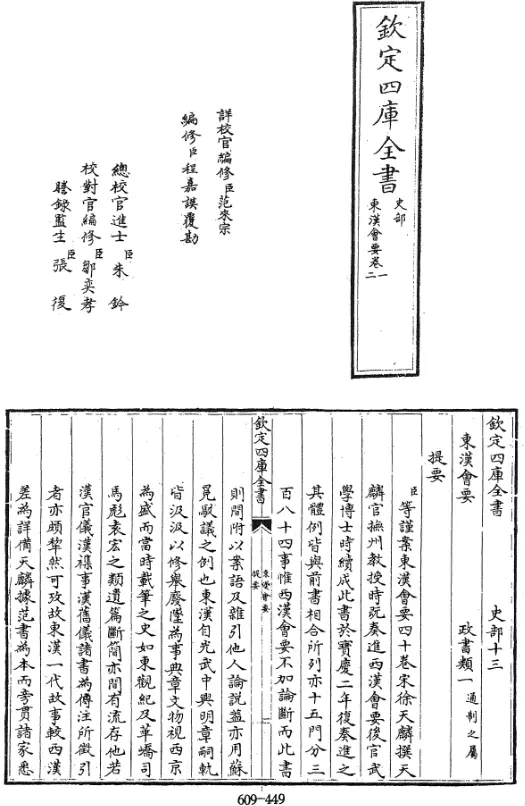 欽定四庫全書
史部
東漢會要卷一
二
詳校官編修臣范來宗
編修臣程嘉謨覆勘
總校官進士臣朱鈐
校對官編修臣鄒奕孝
謄錄監生臣張復
欽定四庫全書 史部十三
東漢會要 政書類一通制之屬
提要
臣等謹案東漢會要四十卷宋徐天麟撰天
麟官撫州教授時既奏進西漢會要後官武
學博士時續成此書於寶慶二年復奏進之
其體例皆與前書相合所列亦十五門分三
百八十四事惟西漢會要不加論斷而此書
欽定四庫全書
東漢會要
提要
一
則間附以案語及雜引他人論説蓋亦用蘇
冕駁議之例也東漢自光武中興明章嗣軌
皆汲汲以修舉廢墜為事典章文物視西京
為盛而當時載筆之史如東觀紀及華嶠司
馬彪袁宏之類遺篇斷簡亦間有流存他若
漢官儀漢雜事漢舊儀諸書為傳注所徵引
者亦頗犂然可攷故東漢一代故事較西漢
差為詳備天麟據范書為本而旁貫諸家悉
609-449